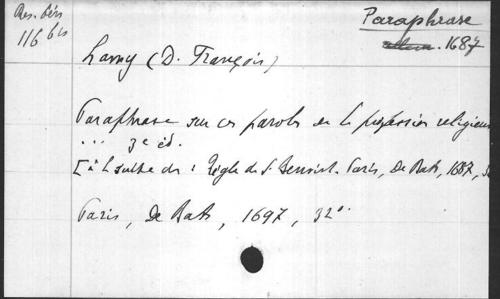 Res. bérs
116 bis
Paraphrase
1687
Lamy (D. François)
Paraphrase sur ces paroles de la profession religieuse
... 3e éd.
[à la suite de : Règle de S. Benoist. Paris, De Bats, 1687,
Paris, De Bats, 1697, 32°.